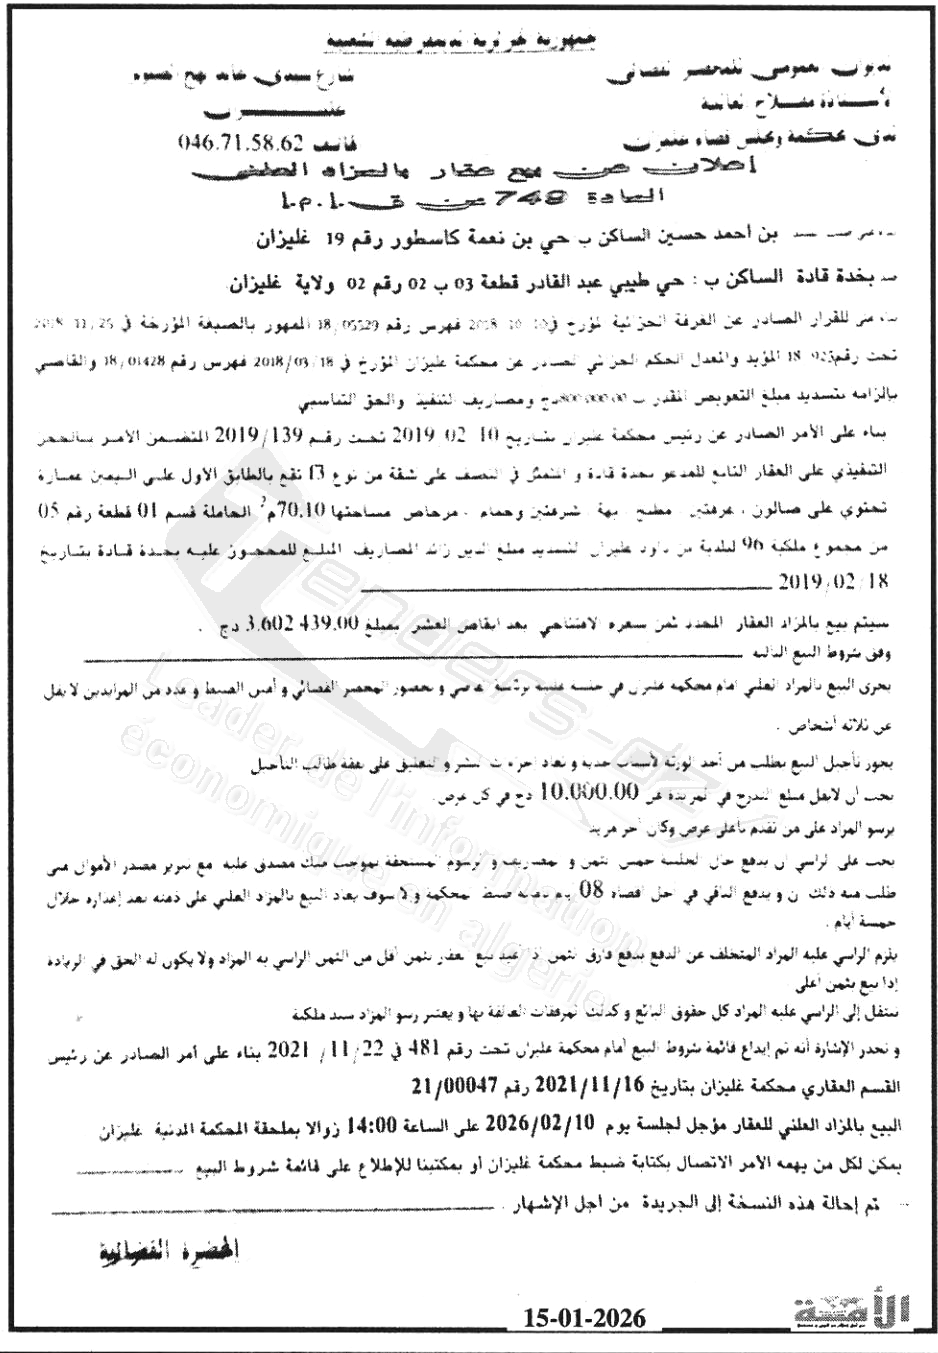 جمهورية الجزائرية الديمقراطية الشعبية
الديوان العمومي للمحضر القضائي
شارع سيدي عابد نهج الصومام
الأستاذة مفلاح العالية
غليـــــــزان
لدى محكمة ومجلس قضاء غليزان
هاتف 046.71.58.62
إعلان عن بيع عقار بالمزاد العلني
المادة 749 من ق.إ.م.إ
بن أحمد حسين الساكن ب حي بن نعمة كاسطور رقم 19 غليزان
ضد بخدة قادة الساكن ب : حي طيبي عبد القادر قطعة 03 ب 02 رقم 02 ولاية غليزان
بناءا على للقرار الصادر عن الغرفة الجزائية المؤرخ في 10-10-2018 فهرس رقم 18/05529 الممهور بالصيغة المؤرخة في 2018/11/25
تحت رقم المؤيد والمعدل الحكم الجزائي الصادر عن محكمة غليزان المؤرخ في 2018/03/18 فهرس رقم 18/01428 والقاضي
بإلزامه بتسديد مبلغ التعويض المقدر ب 800.000.00دج ومصاريف التنفيذ والحق التناسبي
بناء على الأمر الصادر عن رئيس محكمة غليزان بتاريخ 10 02 2019 تحت رقم 2019/139 المتضمن الأمر بالحجز
التنفيذي على العقار التابع للمدعو بخدة قادة و المتمثل في النصف على شقة من نوع f3 تقع بالطابق الاول على اليمين عمارة
تحتوي على صالون ، غرفتين ، مطبخ ، بهو ، شرفتين وحمام ، مرحاض مساحتها 70,10م2 الحاملة قسم 01 قطعة رقم 05
من مجموع ملكية 96 لبلدية بن داود غليزان لتسديد مبلغ الدين زائد المصاريف المبلغ للمحجوز عليه بخدة قادة بتاريخ
2019/02/18
سيتم بيع بالمزاد العقار المحدد ثمن سعره الافتتاحي بعد انقاص العشر بمبلغ 3.602 439.00 دج .
وفق شروط البيع التالية
يجرى البيع بالمزاد العلني امام محكمة غليزان في جلسة علنية برئاسة القاضي و بحضور المحضر القضائي و أمين الضبط و عدد من المزايدين لا يقل
عن ثلاثة أشخاص .
يجوز تأجيل البيع بطلب من أحد الورثة لأسباب جدية و تعاد اجراءات النشر و التعليق على نفقة طالب التأجيل
يجب أن لا يقل مبلغ التدرج في المزيدة عن 10.000.00 دج في كل عرض.
يرسو المزاد على من تقدم بأعلى عرض وكان آخر مزيد
يجب على الراسي ان يدفع حال الجلسة خمس الثمن و المصاريف و الرسوم المستحقة بموجب شيك مصدق عليه مع تبرير مصدر الأموال متى
طلب منه ذلك و يدفع الباقي في أجل أقصاه 08 أيام بأمانة ضبط المحكمة و إلا سوف يعاد البيع بالمزاد العلني على ذمته بعد إعذاره خلال
خمسة أيام .
يلزم الراسي عليه المزاد المتخلف عن الدفع بدفع فارق الثمن إذا أعيد بيع العقار بثمن أقل من الثمن الراسي به المزاد ولا يكون له الحق في الزيادة
إذا بيع بثمن أعلى
تنتقل إلى الراسي عليه المزاد كل حقوق البائع و كذلك الارتفاقات العالقة بها و يعتبر رسو المزاد سند ملكية
و تجدر الإشارة أنه تم إيداع قائمة شروط البيع أمام محكمة غليزان تحت رقم 481 في 22/11/ 2021 بناء على أمر الصادر عن رئيس
القسم العقاري محكمة غليزان بتاريخ 2021/11/16 رقم 21/00047
البيع بالمزاد العلني للعقار مؤجل لجلسة يوم 2026/02/10 على الساعة 14:00 زوالا بملحقة المحكمة المدنية غليزان
يمكن لكل من يهمه الامر الاتصال بكتابة ضبط محكمة غليزان أو بمكتبنا للإطلاع على قائمة شروط البيع
تم إحالة هذه النسخة إلى الجريدة من اجل الإشهار .
المحضرة القضائية
15-01-2026
الأمة
Tenders-dz
Leader de l'information
économique en algérie